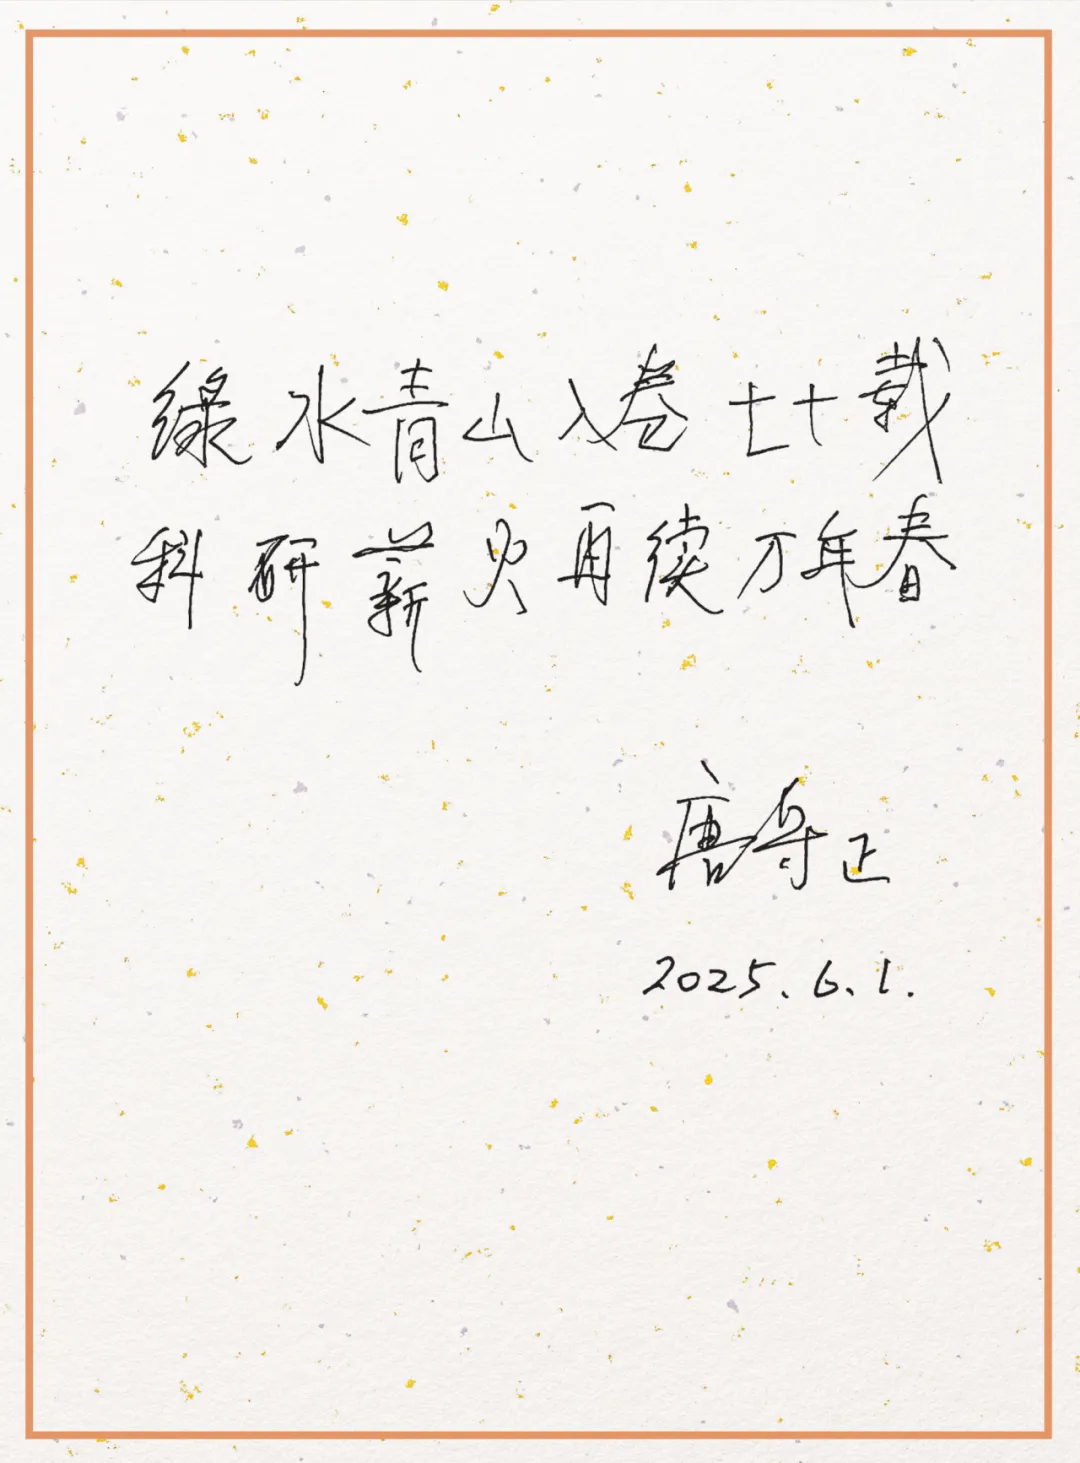 绿水青山入卷七十载
科研薪火再续万年春
唐守正
2025.6.1.